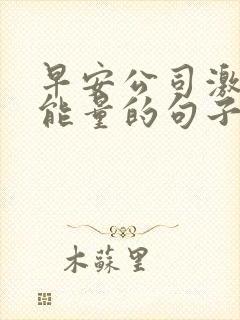 早安公司激
能量的句子
木蘇里